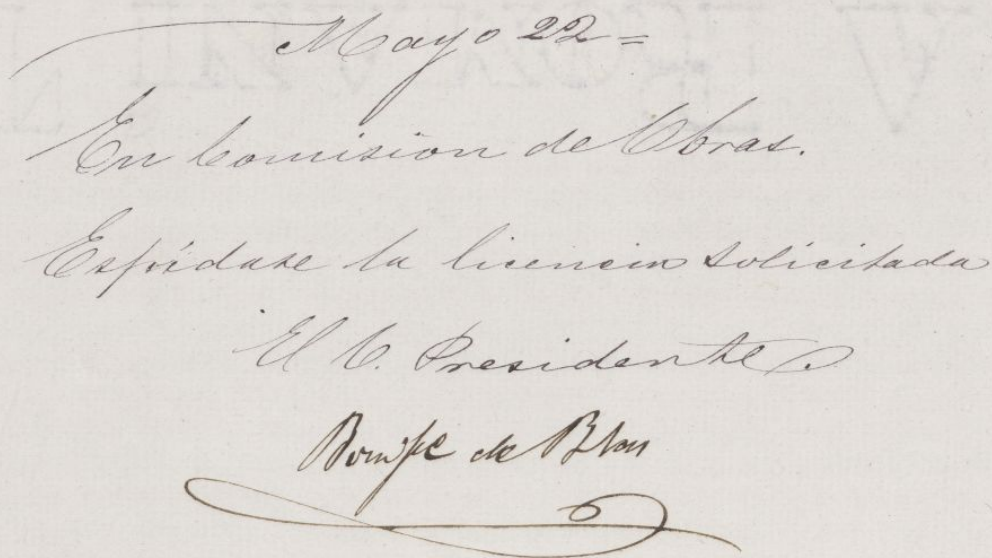 Mayo 22=
En Comision de Obras.
Espídase la licencia solicitada
El C. Presidente
de Blas